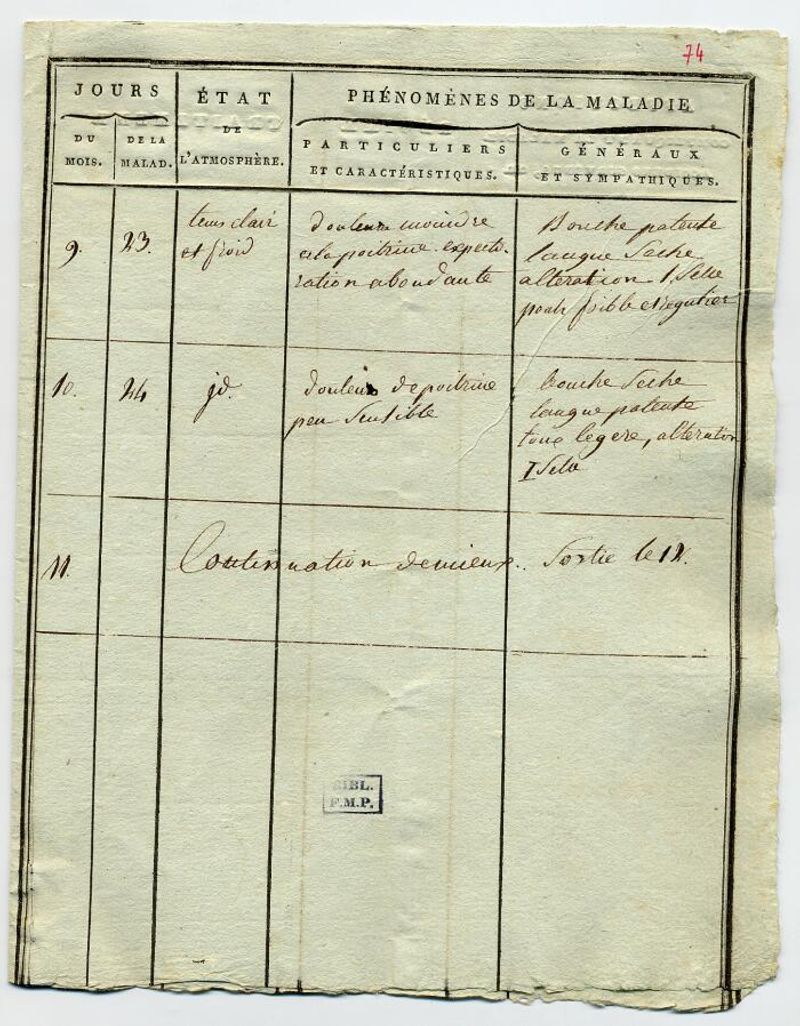 74
JOURS
ÉTAT
PHÉNOMÈNES DE LA MALADIE
DU
DE LA
DE
PARTICULIERS
GÉNÉRAUX
MOIS.
MALAD.
L'ATMOSPHÈRE.
ET CARACTÉRISTIQUES.
ET SYMPATHIQUES.
9.
23.
tems clair
et froid
douleur moindre
a la poitrine. expecto-
ration abondante
Bouche patente
langue Seche
alteration 1 Selle
pouls foible et regulier
10.
24
jd.
douleur de poitrine
peu Sensible
bouche Seche
langue patente
toux legere, alteration
1 Selle
11.
Continuation de mieux. Sortie le 12.
BIBL.
F.M.P.